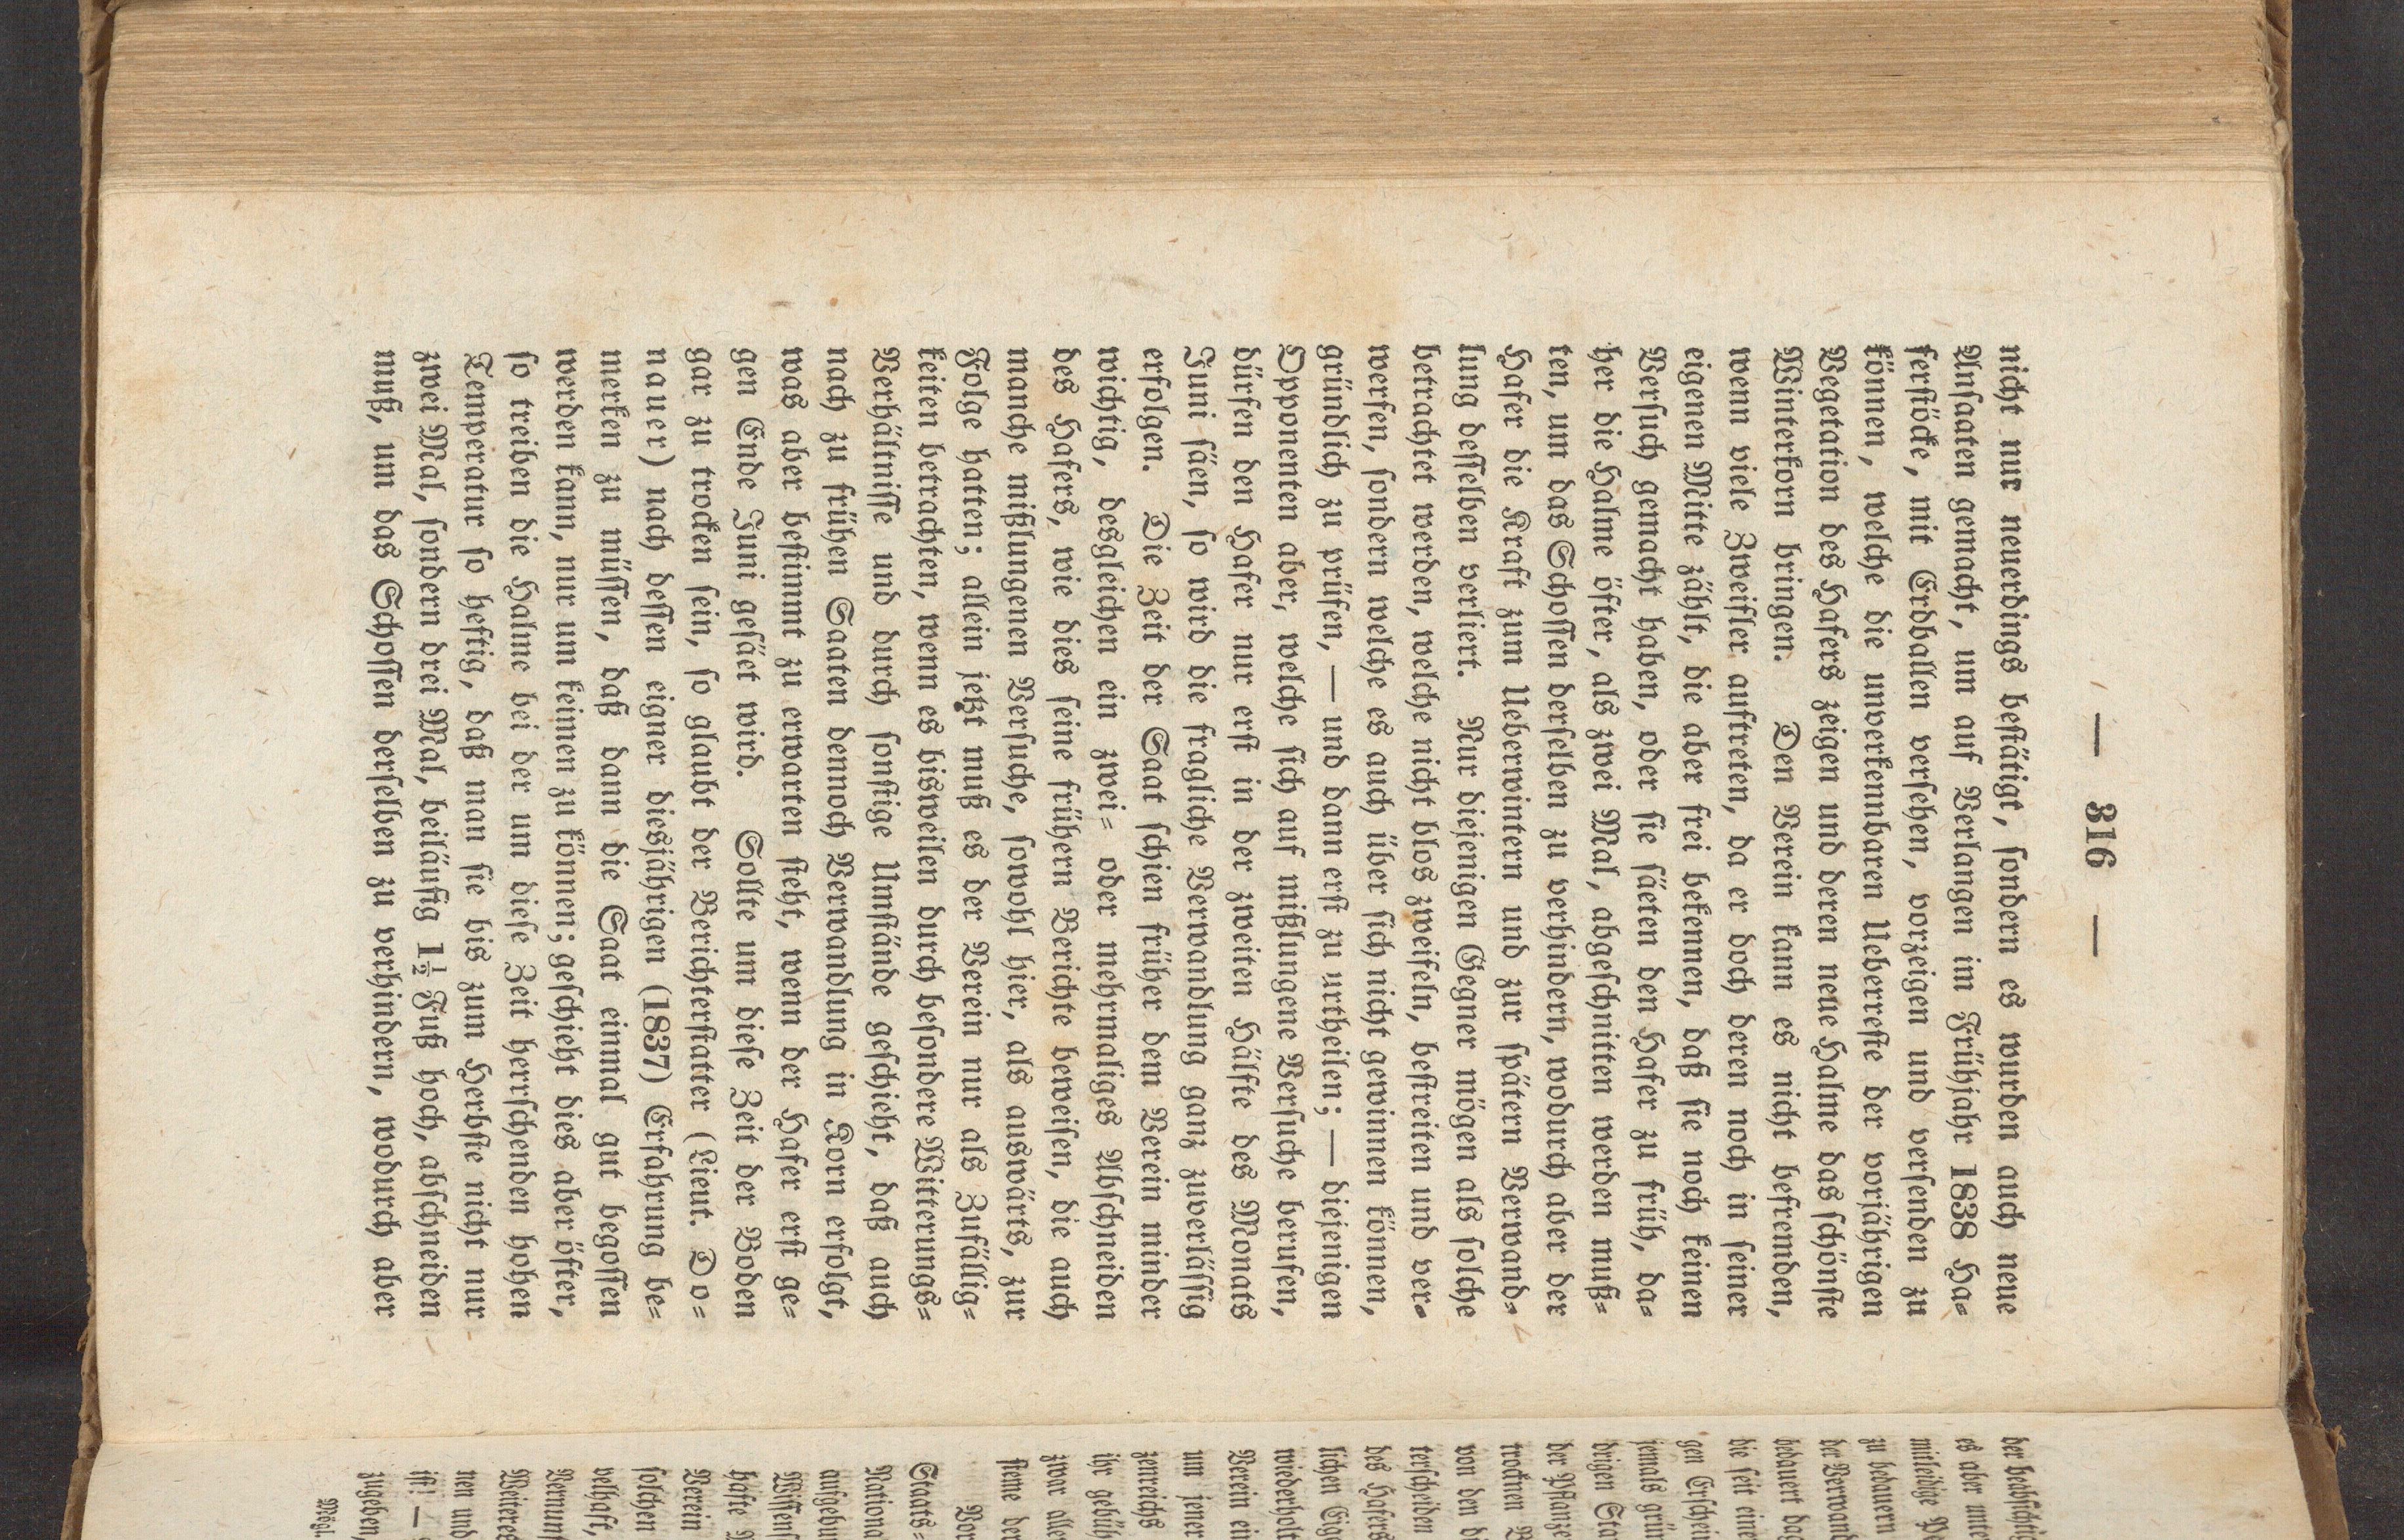 — 316 —
nicht nur neuerdings beſtätigt, ſondern es wurden auch neue
Anſaaten gemacht, um auf Verlangen im Frühjahr 1838 Ha-
ferſtöcke, mit Erdballen verſehen, vorzeigen und verſenden zu
können, welche die unverkennbaren Ueberreſte der vorjährigen
Vegetation des Hafers zeigen und deren neue Halme das ſchönſte
Winterkorn bringen. Den Verein kann es nicht befremden,
wenn viele Zweifler auftreten, da er doch deren noch in ſeiner
eigenen Mitte zählt, die aber frei bekennen, daß ſie noch keinen
Verſuch gemacht haben, oder ſie ſäeten den Hafer zu früh, da-
her die Halme öfter, als zwei Mal, abgeſchnitten werden muß-
ten, um das Schoſſen derſelben zu verhindern, wodurch aber der
Hafer die Kraft zum Ueberwintern und zur ſpätern Verwand-
lung deſſelben verliert. Nur diejenigen Gegner mögen als ſolche
betrachtet werden, welche nicht blos zweifeln, beſtreiten und ver-
werfen, ſondern welche es auch über ſich nicht gewinnen können,
gründlich zu prüfen, — und dann erſt zu urtheilen; — diejenigen
Opponenten aber, welche ſich auf mißlungene Verſuche berufen,
dürfen den Hafer nur erſt in der zweiten Hälfte des Monats
Juni ſäen, ſo wird die fragliche Verwandlung ganz zuverläſſig
erfolgen. Die Zeit der Saat ſchien früher dem Verein minder
wichtig, desgleichen ein zwei= oder mehrmaliges Abſchneiden
des Hafers, wie dies ſeine frühern Berichte beweiſen, die auch
manche mißlungenen Verſuche, ſowohl hier, als auswärts, zur
Folge hatten; allein jetzt muß es der Verein nur als Zufällig-
keiten betrachten, wenn es bisweilen durch beſondere Witterungs-
Verhältniſſe und durch ſonſtige Umſtände geſchieht, daß auch
nach zu frühen Saaten dennoch Verwandlung in Korn erfolgt,
was aber beſtimmt zu erwarten ſteht, wenn der Hafer erſt ge-
gen Ende Juni geſäet wird. Sollte um dieſe Zeit der Boden
gar zu trocken ſein, ſo glaubt der Berichterſtatter (Lieut. Do-
nauer) nach deſſen eigner diesjährigen (1837) Erfahrung be-
merken zu müſſen, daß dann die Saat einmal gut begoſſen
werden kann, nur um keimen zu können; geſchieht dies aber öfter,
ſo treiben die Halme bei der um dieſe Zeit herrſchenden hohen
Temperatur ſo heftig, daß man ſie bis zum Herbſte nicht nur
zwei Mal, ſondern drei Mal, beiläufig 1½ Fuß hoch, abſchneiden
muß, um das Schoſſen derſelben zu verhindern, wodurch aber
der
es aber
mitleidige
zu bedauern
der
bedauert
die ſeit eine
gen
jemals
drigen
der Pflanze
trocknen
von den
terſcheiden
des Hafers
lichen
wiederholt
Verein ein
um jener
zenreichs
ihr
zwar
ſteme
Staats=
Nationa
Wiſſenſ
hafte
Verein
ſolchen
Weiteres
nen und
iſt! —
zugeben,
Mögl.